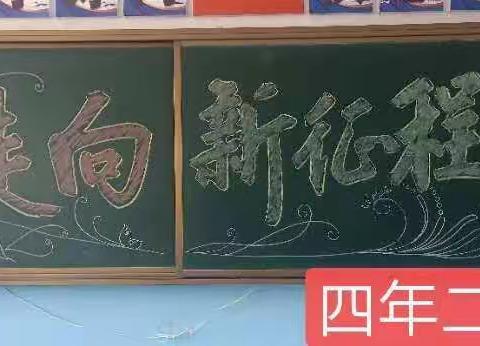 走向新征程
四年二